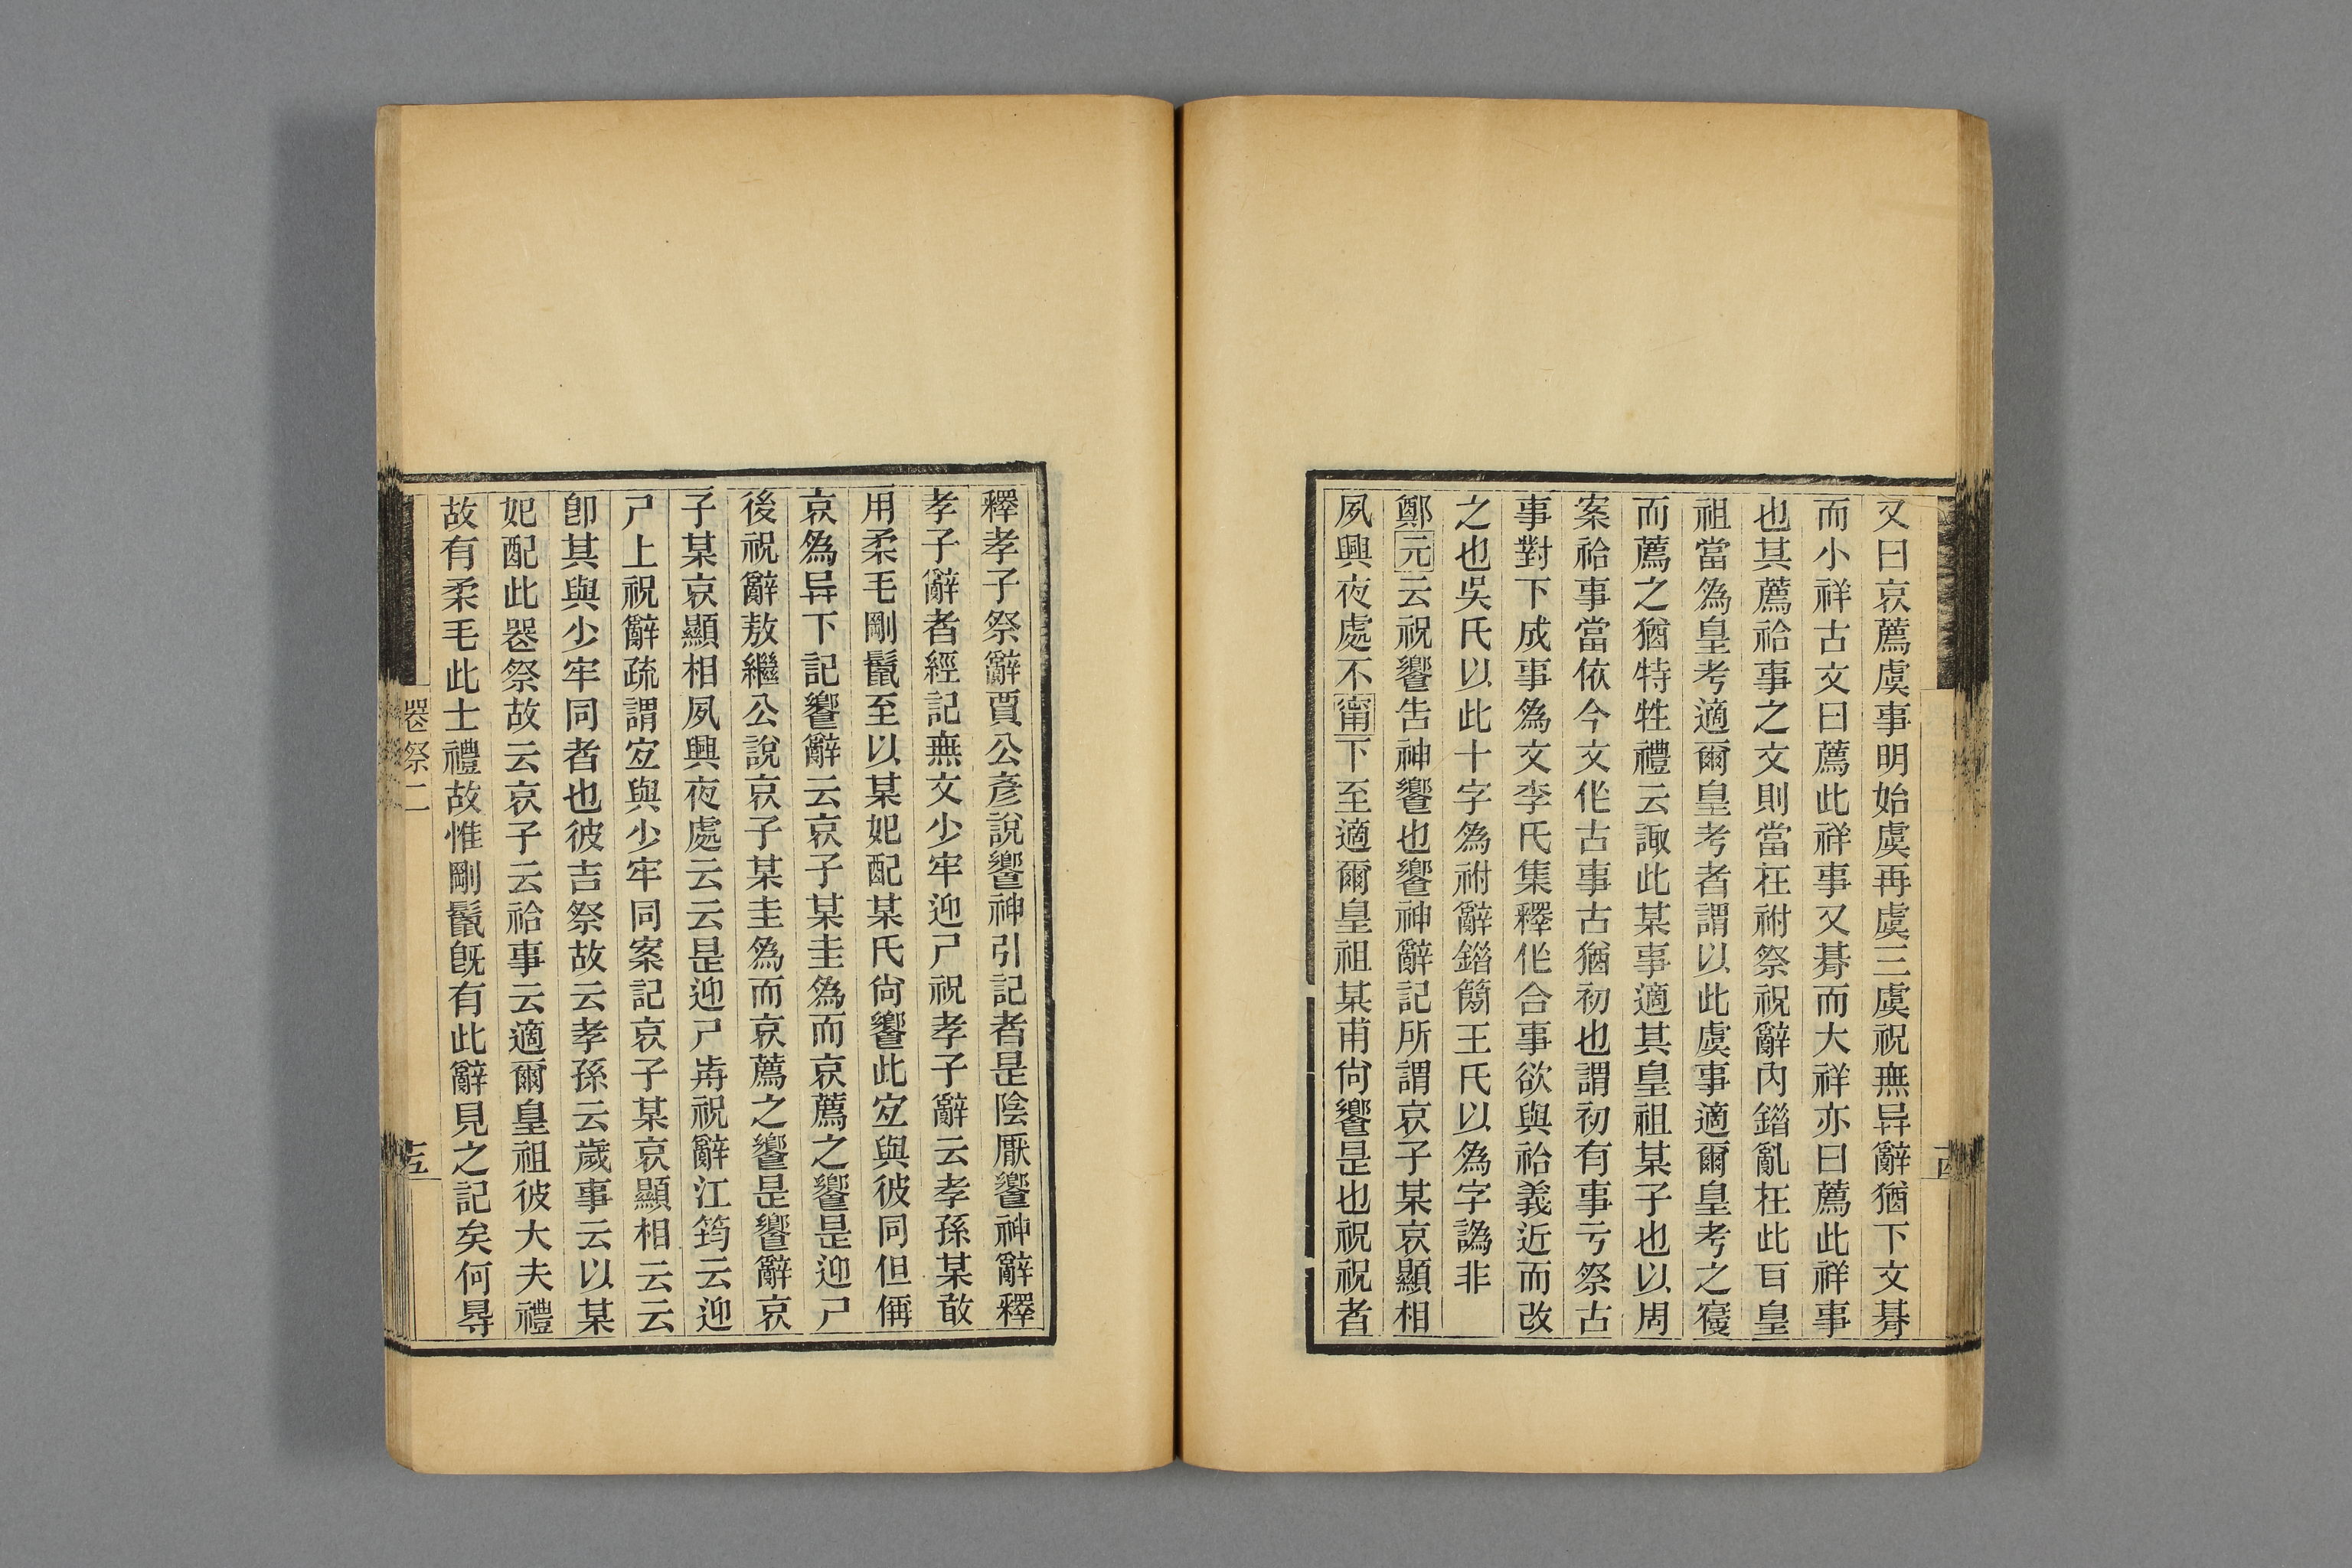 又曰哀薦虞事明始虞再虞三虞祝無异辭猶下文朞
而小祥古文曰薦此祥事又朞而大祥亦曰薦此祥事
也其薦祫事之文則當在祔祭祝辭內錯亂在此百皇
祖當為皇考適爾皇考者謂以此虞事適爾皇考之寢
而薦之猶特牲禮云諏此某事適其皇祖某子也以周
案祫事當依今文作古事古猶初也謂初有事亏祭古
事對下成事為文李氏集釋作合事欲與祫義近而改
之也吳氏以此十字為祔辭錯簡王氏以為字譌非
鄭元云祝饗告神饗也饗神辭記所謂哀子某哀顯相
夙興夜處不甯下至適爾皇祖某甫尙饗是也祝祝者
釋孝子祭辭賈公彥說饗神引記者是陰厭饗神辭釋
孝子辭者經記無文少牢迎尸祝孝子辭云孝孫某敢
用柔毛剛鬣至以某妃配某氏尙饗此㝎與彼同但偁
哀為异下記饗辭云哀子某圭為而哀薦之饗是迎尸
後祝辭敖繼公說哀子某圭為而哀薦之饗是饗辭哀
子某哀顯相夙興夜處云云是迎尸歬祝辭江筠云迎
尸上祝辭疏謂㝎與少牢同案記哀子某哀顯相云云
卽其與少牢同者也彼吉祭故云孝孫云歲事云以某
妃配此喪祭故云哀子云祫事云適爾皇祖彼大夫禮
故有柔毛此士禮故惟剛鬣旣有此辭見之記矣何㝵
喪祭二
十五